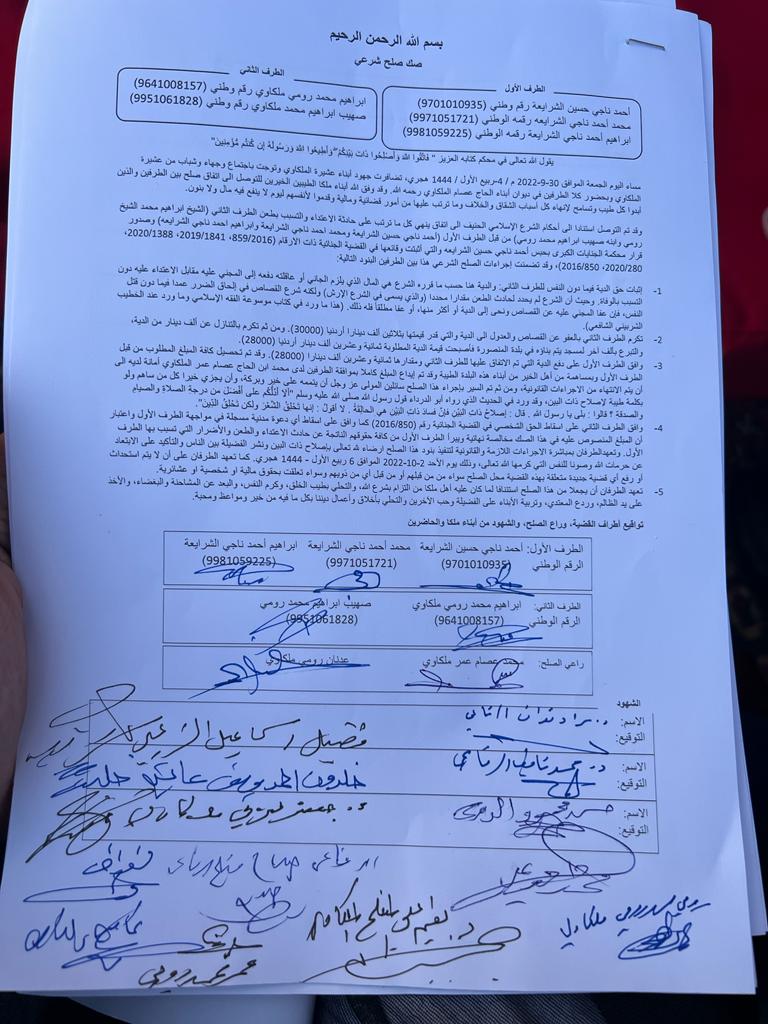 بسم الله الرحمن الرحيم
صك صلح شرعي
الطرف الأول
أحمد ناجي حسين الشرايعة رقم وطني (9701010935)
محمد أحمد ناجي الشرايعه رقمه الوطني (9971051721)
ابراهيم أحمد ناجي الشرايعة رقمه الوطني (9981059225)
الطرف الثاني
ابراهيم محمد رومي ملكاوي رقم وطني (9641008157)
صهيب ابراهيم محمد ملكاوي رقم وطني (9951061828)
يقول الله تعالى في محكم كتابه العزيز " فاتَّقُوا اللَّهَ وَأَصْلِحُوا ذَاتَ بَيْنِكُمْ وَأَطِيعُوا اللَّهَ وَرَسُولَهُ إِن كُنتُم مُّؤْمِنِينَ"
مساء اليوم الجمعة الموافق 30-9-2022 م / 4-ربيع الأول / 1444 هجري، تضافرت جهود أبناء عشيرة الملكاوي وتوجت باجتماع وجهاء وشباب من عشيرة
الملكاوي وبحضور كلا الطرفين في ديوان أبناء الحاج عصام الملكاوي رحمه الله. وقد وفق الله أبناء ملكا الطيبين الخيرين للتوصل الى اتفاق صلح بين الطرفين والذين
أبدوا كل طيب وتسامح لإنهاء كل أسباب الشقاق والخلاف وما ترتب عليها من أمور قضائية ومالية وقدموا لأنفسهم ليوم لا ينفع فيه مال ولا بنون.
وقد تم التوصل استنادا الى أحكام الشرع الإسلامي الحنيف الى اتفاق ينهي كل ما ترتب على حادثة الاعتداء والتسبب بطعن الطرف الثاني (الشيخ ابراهيم محمد الشيخ
رومي وابنه صهيب ابراهيم محمد رومي) من قبل الطرف الأول (أحمد ناجي حسين الشرايعة ومحمد احمد ناجي الشرايعة وابراهيم احمد ناجي الشرايعه) وصدور
قرار محكمة الجنايات الكبرى بحبس أحمد ناجي حسين الشرايعه والتي أثبتت وقائعها في القضية الجنائية ذات الارقام (859/2016)، 2019/1841، 2020/1388،
2020/280، 2016/850)، وقد تضمنت إجراءات الصلح الشرعي هذا بين الطرفين البنود التالية:
1- إثبات حق الدية فيما دون النفس للطرف الثاني: والدية هنا حسب ما قرره الشرع هي المال الذي يلزم الجاني أو عاقلته دفعه إلى المجني عليه مقابل الاعتداء عليه دون
التسبب بالوفاة. وحيث أن الشرع لم يحدد لحادث الطعن مقدارا محددا (والذي يسمى في الشرع الإرش) ولكنه شرع القصاص في إلحاق الضرر عمدا فيما دون قتل
النفس، فإن عفا المجني عليه عن القصاص ونحى إلى الدية أو أكثر منها، أو عفا مطلقاً فله ذلك. (هذا ما ورد في كتاب موسوعة الفقه الإسلامي وما ورد عند الخطيب
الشربيني الشافعي).
2- تكرم الطرف الثاني بالعفو عن القصاص والعدول الى الدية والتي قدر قيمتها بثلاثين ألف دينارا أردنيا (30000). ومن ثم تكرم بالتنازل عن ألف دينار من الدية،
والتبرع بألف آخر لمسجد يتم بناؤه في بلدة المنصورة فأصبحت قيمة الدية المطلوبة ثمانية وعشرين ألف دينار أردنيا (28000).
3- وافق الطرف الأول على دفع الدية التي تم الاتفاق عليها للطرف الثاني ومقدارها ثمانية وعشرين ألف دينارا (28000). وقد تم تحصيل كافة المبلغ المطلوب من قبل
الطرف الأول وبمساهمة من أهل الخير من أبناء هذه البلدة الطيبة وقد تم إيداع المبلغ كاملا بموافقة الطرفين لدى محمد ابن الحاج عصام عمر الملكاوي أمانة لديه الى
أن يتم الإنتهاء من الاجراءات القانونية، ومن ثم تم السير بإجراء هذا الصلح سائلين المولى عز وجل أن يتممه على خير وبركة، وأن يجزي خيرا كل من ساهم ولو
بكلمة طيبة لإصلاح ذات البين، وقد ورد في الحديث الذي رواه أبو الدرداء قول رسول الله صلى الله عليه وسلم "ألا أدُلُّكم على أفضلَ من درجة الصلاة والصيام
والصدقة ؟ قالوا : بلى يا رسول الله . قال : إصلاحُ ذاتِ البَيْنِ فإنَّ فسادَ ذاتِ البَيْنِ هي الحالِقَةُ . لا أقولُ : إنها تَحلِقُ الشَّعْرَ ولكن تَحلِقُ الدِّينَ".
4- وافق الطرف الثاني على اسقاط الحق الشخصي في القضية الجنائية رقم (2016/850) كما وافق على اسقاط أي دعوة مدنية مسجلة في مواجهة الطرف الأول واعتبار
أن المبلغ المنصوص عليه في هذا الصك مخالصة نهائية ويبرأ الطرف الأول من كافة حقوقهم الناتجة عن حادث الاعتداء والطعن والأضرار التي تسبب بها الطرف
الأول. وتعهدالطرفان بمباشرة الاجراءات اللازمة والقانونية لتنفيذ بنود هذا الصلح ارضاء لله تعالى بإصلاح ذات البين ونشر الفضيلة بين الناس والتأكيد على الابتعاد
عن حرمات الله وصونا للنفس التي كرمها الله تعالى، وذلك يوم الأحد 2-10-2022 الموافق 6 ربيع الأول - 1444 هجري. كما تعهد الطرفان على أن لا يتم استحداث
أو رفع أي قضية جديدة متعلقة بهذه القضية محل الصلح سواء من من قبلهم أو من قبل أي من ذويهم وسواء تعلقت بحقوق مالية او شخصية او عشائرية.
5- تعهد الطرفان أن يجعلا من هذا الصلح استئنافا لما كان عليه أهل ملكا من التزام بشرع الله، والتحلي بطيب الخلق، وكرم النفس، والبعد عن المشاحنة والبغضاء، والأخذ
على يد الظالم، وردع المعتدي، وتربية الأبناء على الفضيلة وحب الآخرين والتحلي بأخلاق وأعمال ديننا بكل ما فيه من خير ومواعظ ومحبة.
تواقيع أطراف القضية، وراع الصلح، والشهود من أبناء ملكا والحاضرين
الطرف الأول: أحمد ناجي حسين الشرايعة محمد أحمد ناجي الشرايعة ابراهيم أحمد ناجي الشرايعة
الرقم الوطني (9701010935) (9971051721) (9981059225)
الطرف الثاني: ابراهيم محمد رومي ملكاوي صهيب ابراهيم محمد رومي
الرقم الوطني (9641008157) (9951061828)
راعي الصلح: محمد عصام عمر ملكاوي عدنان رومي ملكاوي
الشهود
الاسم:
التوقيع:
الاسم:
التوقيع:
الاسم:
التوقيع: